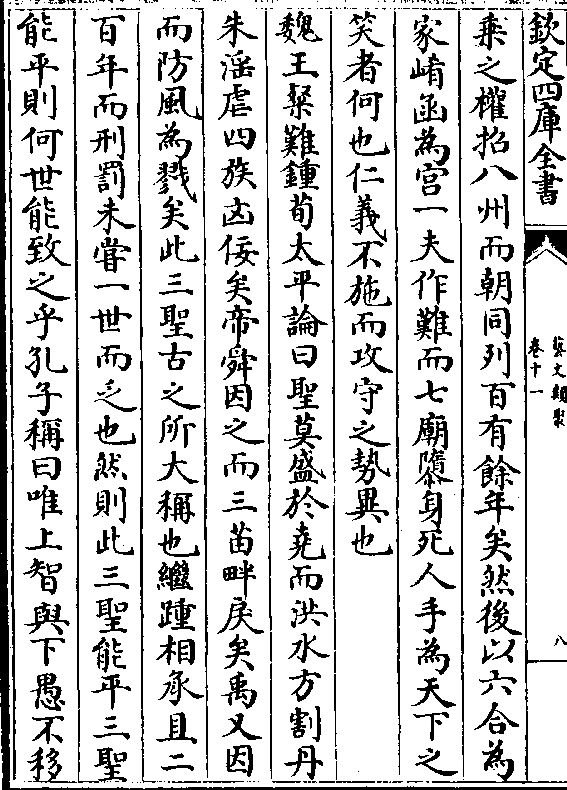 欽定四庫全書
藝文類聚
卷十一
八
乗之權招八州而朝同列百有餘年矣然後以六合為
家崤函為宫一夫作難而七廟隳身死人手為天下之
笑者何也仁義不施而攻守之勢異也
魏王粲難鍾荀太平論曰聖莫盛於堯而洪水方割丹
朱淫虐四族凶佞矣帝舜因之而三苗畔戾矣禹又因
而防風為戮矣此三聖古之所大稱也繼踵相承且二
百年而刑罰未嘗一世而乏也然則此三聖能平三聖
能平則何世能致之乎孔子稱曰唯上智與下愚不移